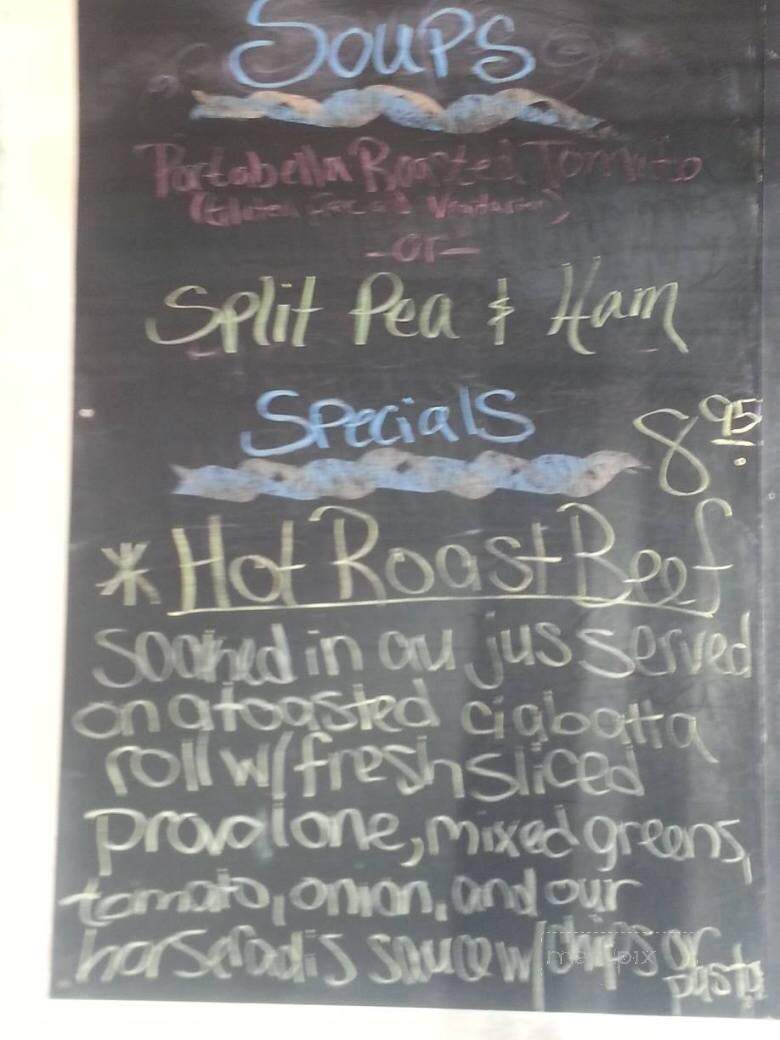 Soups
Portabella Roasted Tomato
(Gluten Free and Vegitarian)
-or-
Split Pea & Ham
Specials
8 95
* Hot Roast Beef
Soaked in au jus served
on a toasted ciabatta
roll w/ fresh sliced
provolone, mixed greens,
tomato, onion, and our
horseradis sauce w/ chips or
pasta